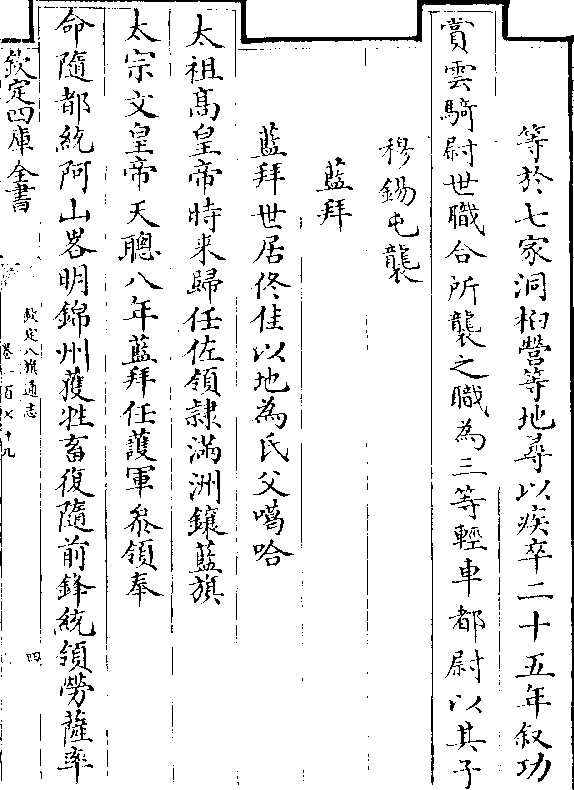 等於七家洞柏營等地尋以疾卒二十五年叙功
賞雲騎尉世職合所襲之職為三等輕車都尉以其子
穆錫屯襲
藍拜
藍拜世居佟佳以地為氏父噶哈
太祖高皇帝時来歸任佐領隸滿洲鑲藍旗
太宗文皇帝天聰八年藍拜任護軍叅領奉
命隨都統阿山畧明錦州獲牲畜復隨前鋒統領勞薩率
欽定四庫全書
欽定八旗通志
卷一百七十九
四